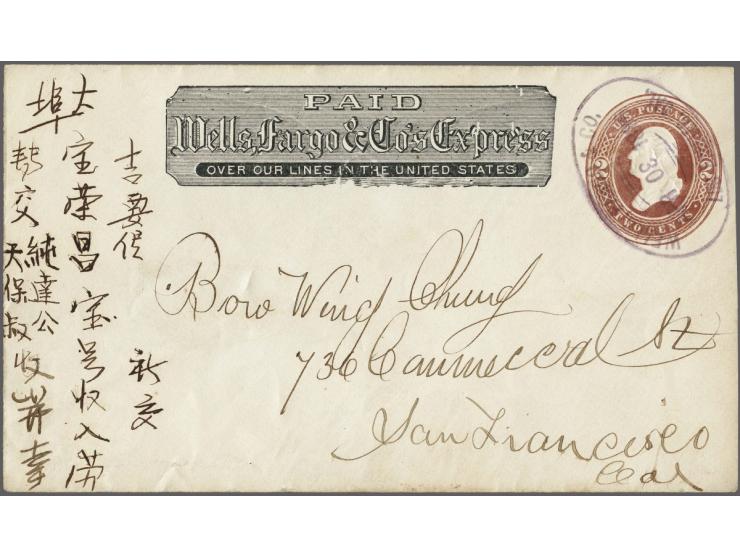 PAID
Wells, Fargo & Co's Express
OVER OUR LINES IN THE UNITED STATES
U.S. POSTAGE
2 2
TWO CENTS
& CO.
30
Bow Wing Chung
736 Commercial St
San Francisco
Cal
吉要信 新交
大埠宝荣昌宝号收入劳
转交純達公
天保叔收